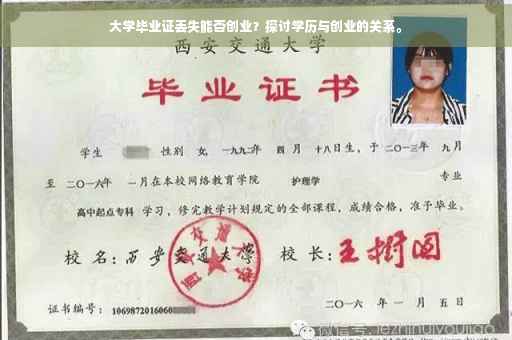 大学毕业证丢失能否创业？探讨学历与创业的关系。
西安交通大学
毕业证书
学生 性别 女，一九九二年 四月 十八日生，于 二〇一三年 九月
至 二〇一六年 一月在本校网络教育学院 护理学 专业
高中起点专科 学习，修完教学计划规定的全部课程，成绩合格，准予毕业。
校名：西安交通大学 校长：王树国
西安交通大学
证书编号：1069872016060 二〇一六年一月五日
微信号: jezhinuiyoujiao